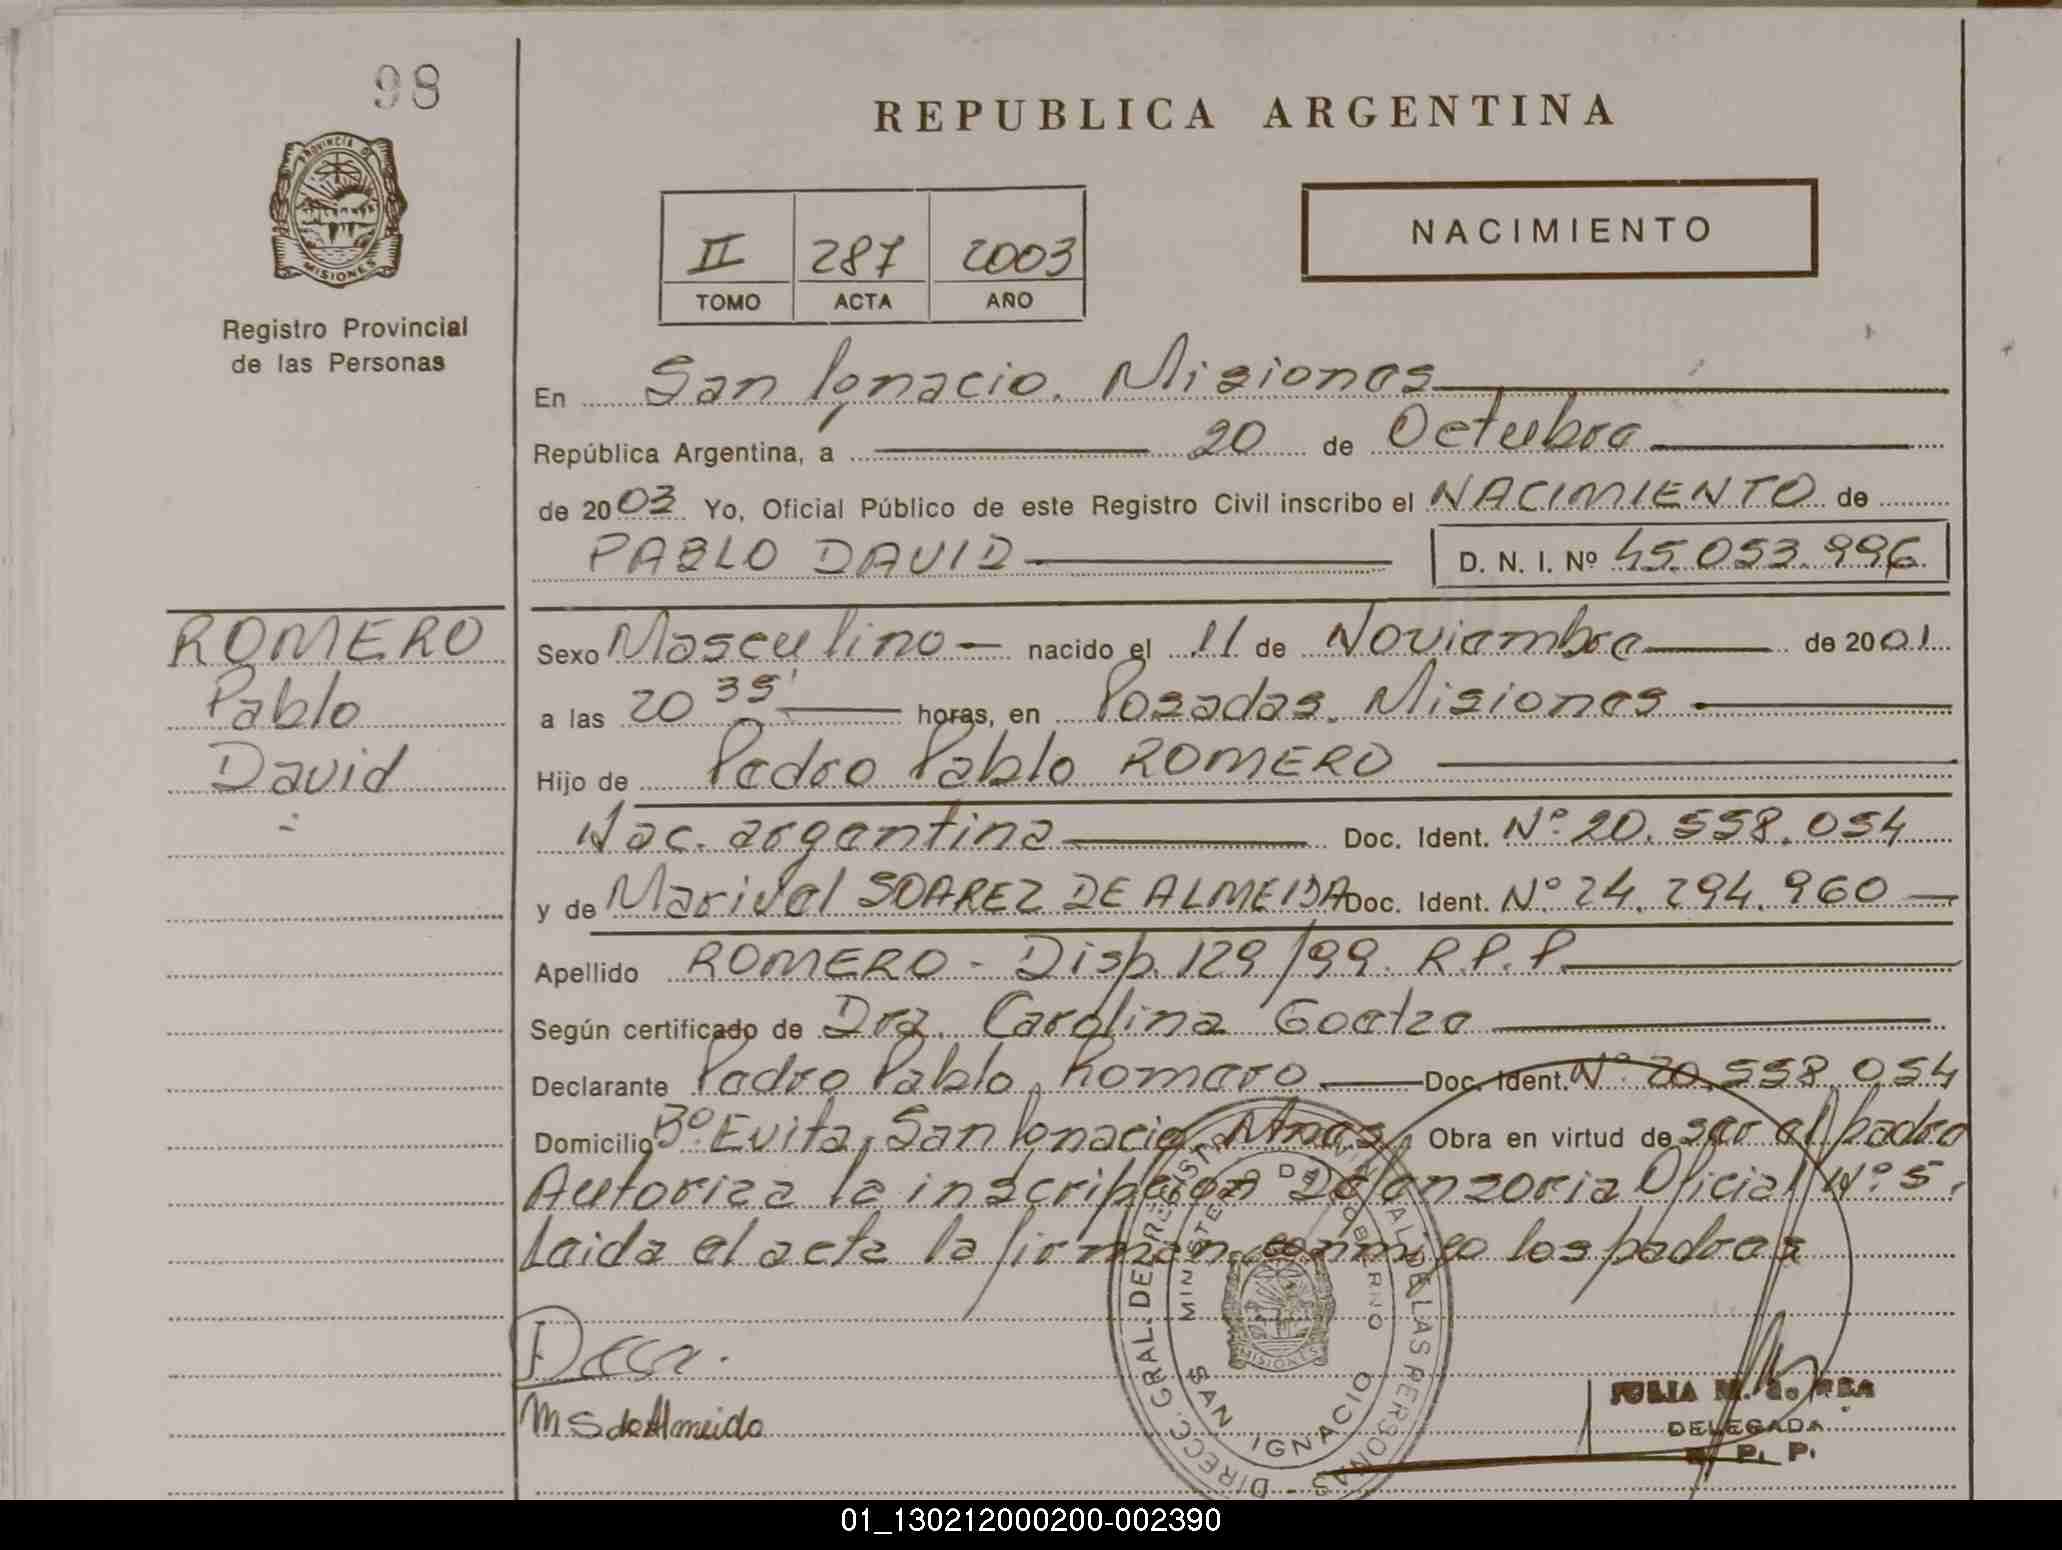 98
PROVINCIA DE
MISIONES
Registro Provincial
de las Personas
REPUBLICA ARGENTINA
II 287 2003
TOMO ACTA AÑO
NACIMIENTO
En San Ignacio. Misiones
República Argentina, a 20 de Octubre
de 2003 Yo, Oficial Público de este Registro Civil inscribo el NACIMIENTO de
PABLO DAVID D. N. I. Nº 45.053.996
ROMERO
Pablo
David
Sexo Masculino nacido el 11 de Noviembre de 2001
a las 20 35' horas, en Posadas. Misiones
Hijo de Pedro Pablo ROMERO
Nac. argentina Doc. Ident. Nº 20.558.054
y de Marisel SOAREZ DE ALMEIDA Doc. Ident. Nº 24.294.960
Apellido ROMERO - Disp. 129/99. R.P.P.
Según certificado de Dra. Carolina Goetze
Declarante Pedro Pablo Romero Doc. Ident. Nº 20.558.054
Domicilio Bº Evita, San Ignacio, Mnes. Obra en virtud de ser el padre
Autoriza la inscripción Defensoria Oficial Nº 5.
Leida el acta la firman conmigo los padres
M S de Almeida
DIRECC. GRAL. DEL REGISTRO PROVINCIAL DE LAS PERSONAS
MINISTERIO DE GOBIERNO
MISIONES
SAN IGNACIO
JULIA M.
DELEGADA
R. P. P.
01_130212000200-002390